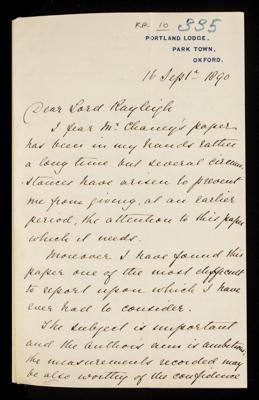 RR. 10 335
PORTLAND LODGE,
PARK TOWN,
OXFORD.
16 Septr. 1890
Dear Lord Rayleigh
I fear Mr Chaney's paper
has been in my hands rather
a long time but several circum-
stances have arisen to prevent
me from giving, at an earlier
period, the attention to this paper
which it needs.
Moreover I have found this
paper one of the most difficult
to report upon which I have
ever had to consider.
The subject is important
and the author's aim is ambitious,
the measurements recorded may
be also worthy of the confidence